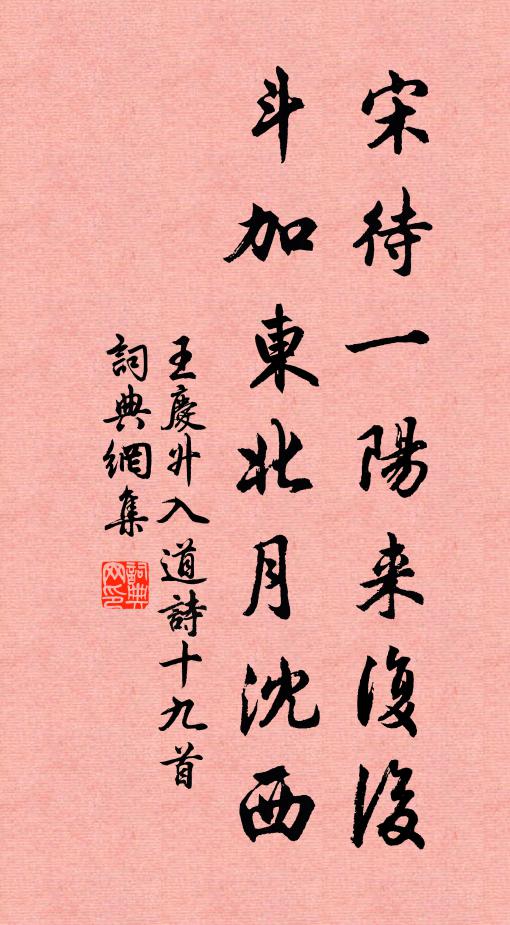 宋待一陽来復後
斗加東北月沈西
王慶升入道詩十九首
詞典網集
詞典网印